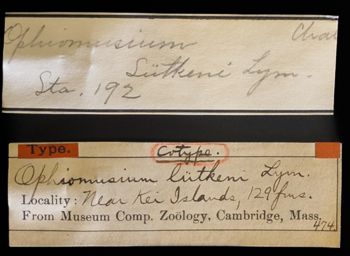 Ophiomusium Chal
Lütkeni Lym.
Sta. 192
Type. Cotype.
Ophiomusium lütkeni Lym.
Locality: Near Kei Islands, 129 fms.
From Museum Comp. Zoölogy, Cambridge, Mass.
474